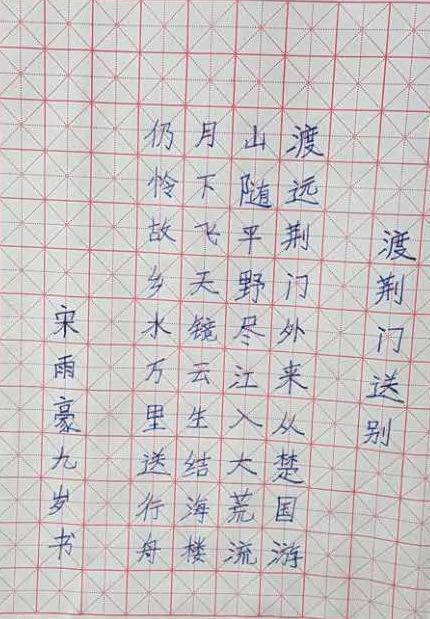 渡荆门送别
渡远荆门外来从楚国游
山随平野尽江入大荒流
月下飞天镜云生结海楼
仍怜故乡水万里送行舟
宋雨豪九岁书